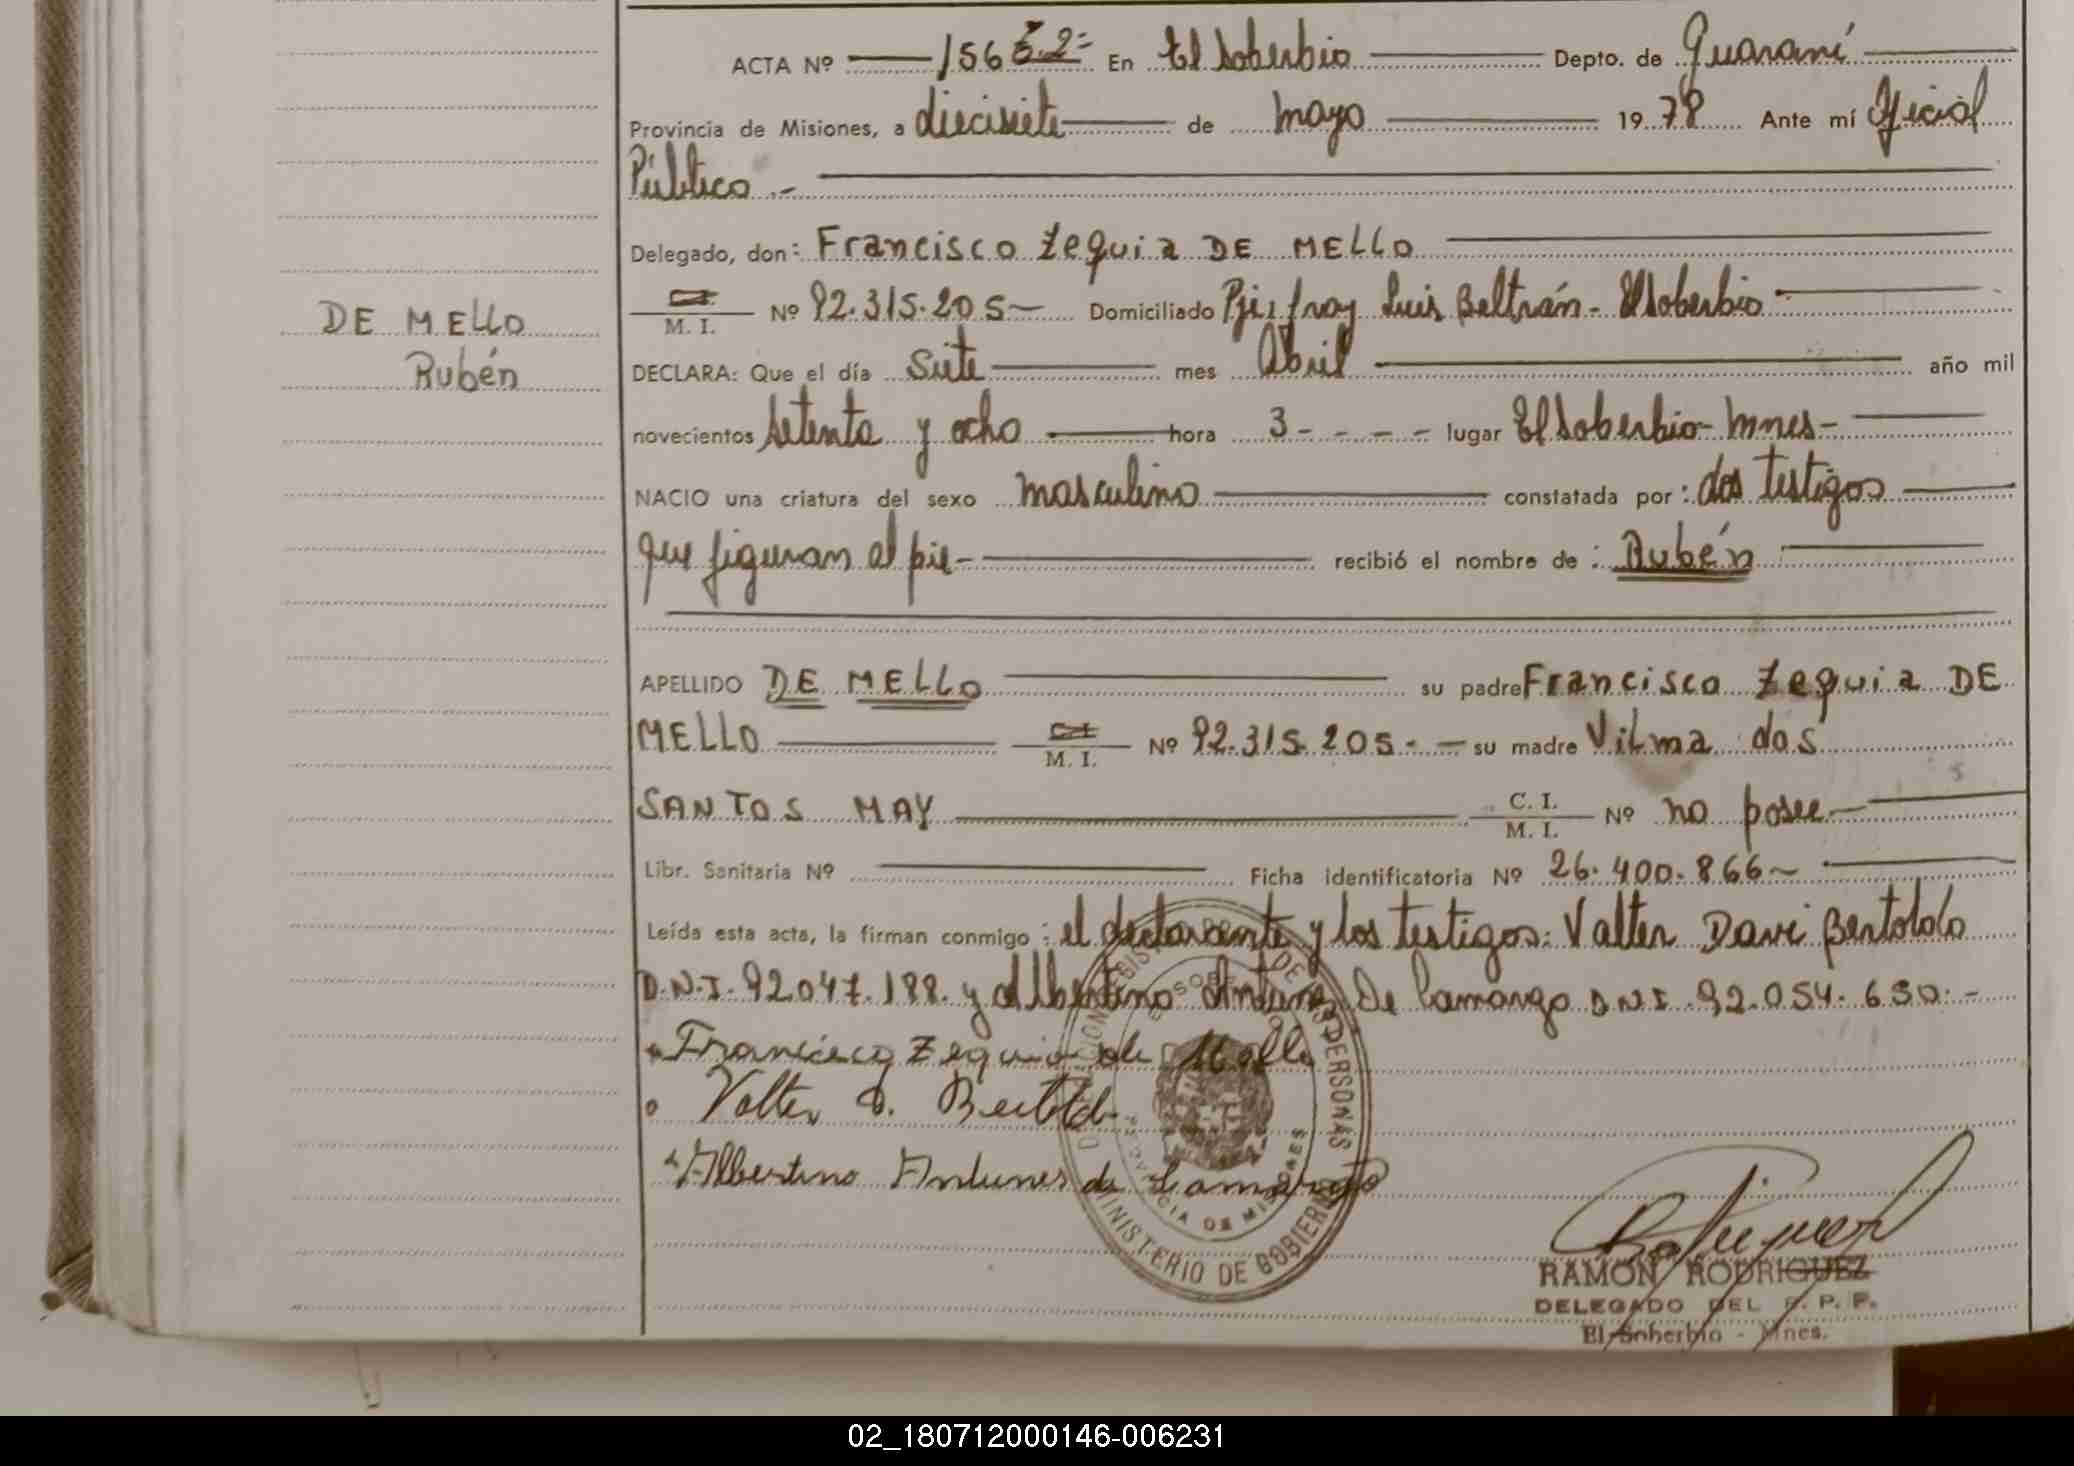 ACTA Nº 15652= En El Soberbio Depto. de Guaraní
Provincia de Misiones, a diecisiete de mayo 1978 Ante mí Oficial
Público.-
Delegado, don: Francisco Zequia DE MELLO
DE MELLO
Rubén
C.I. M. I. Nº 92.315.205 Domiciliado Pje. fray Luis Beltrán - El Soberbio
DECLARA: Que el día siete mes Abril año mil
novecientos setenta y ocho hora 3 - - - - lugar El Soberbio - Mnes -
NACIO una criatura del sexo masculino constatada por: dos testigos
que figuran al pie - recibió el nombre de: Rubén
APELLIDO DE MELLO su padre Francisco Zequia DE
MELLO C.I. M. I. Nº 92.315.205 - - su madre Vilma dos
SANTOS MAY C. I. M. I. Nº no posee
Libr. Sanitaria Nº Ficha identificatoria Nº 26.400.866
Leída esta acta, la firman conmigo: el declarante y los testigos: Valter Davi Bertoldo
D.N.I. 92.047.188. y Albertino Antunes De Camargo D N I 92.054.630.-
Francisco Zequia de Mello
Valter D. Bertoldo
Albertino Antunes de Camargo
DE PERSONAS
PROVINCIA DE MISIONES
MINISTERIO DE GOBIERNO
RAMÓN RODRIGUEZ
DELEGADO DEL R. P. P.
El Soberbio - Mnes.
02_180712000146-006231